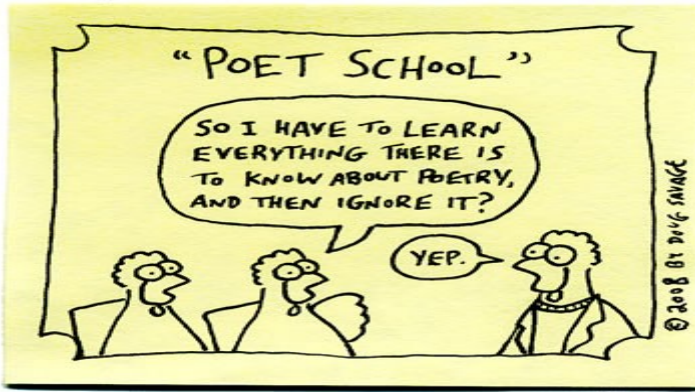 "POET SCHOOL"
SO I HAVE TO LEARN
EVERYTHING THERE IS
TO KNOW ABOUT POETRY,
AND THEN IGNORE IT?
YEP.
© 2008 BY DOUG SAVAGE